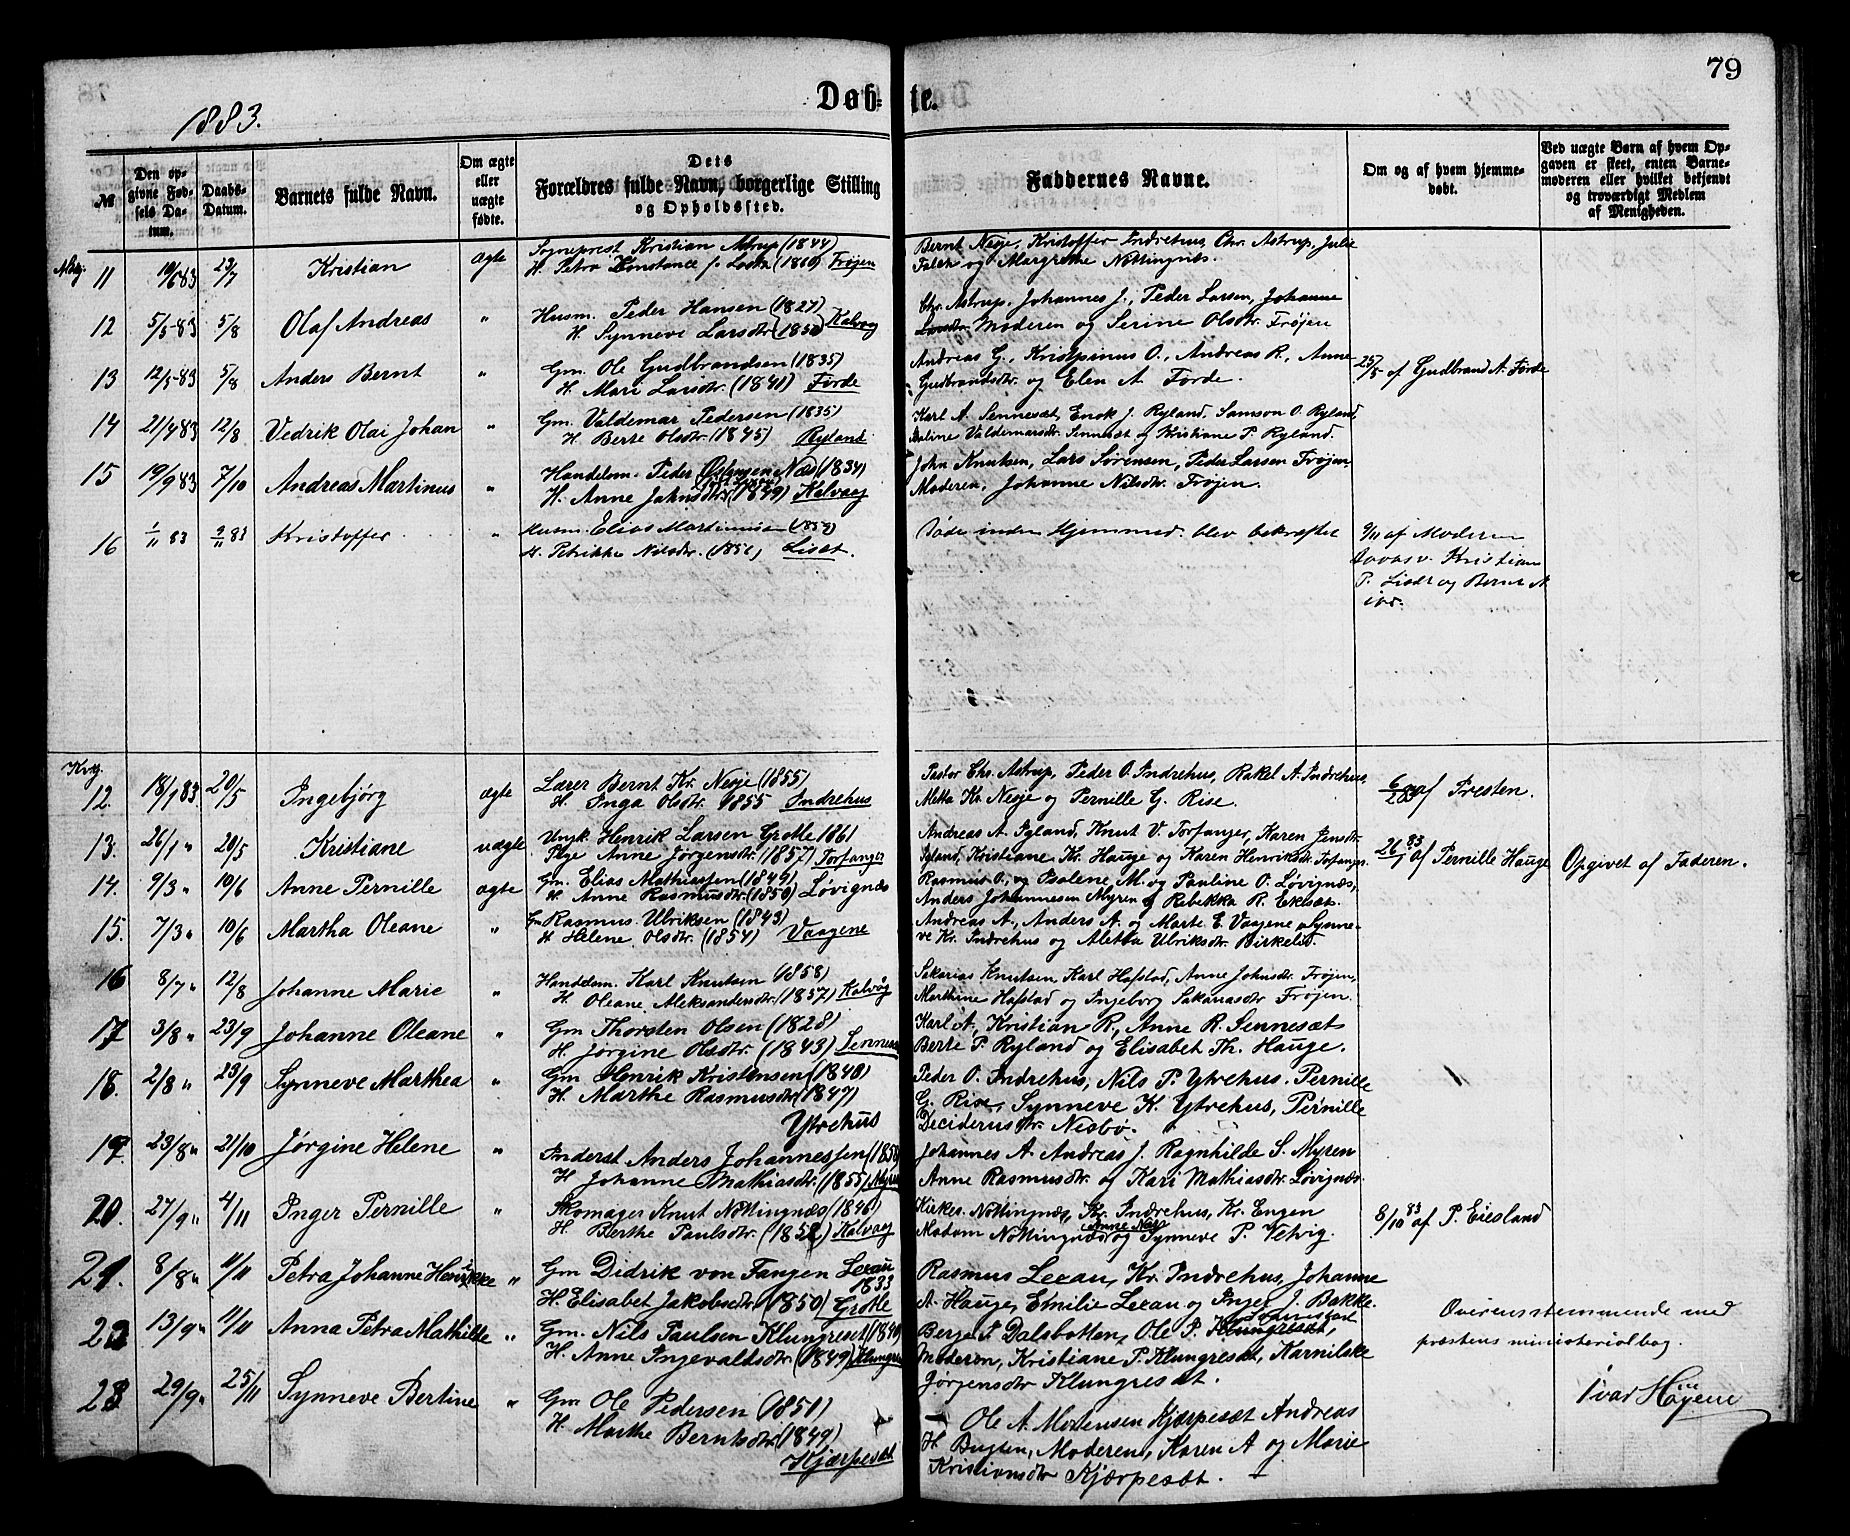 79
Døb- te.
1883.
№
Den opgivne Fødsels Datum.
Daabs-Datum.
Barnets fulde Navn.
Om ægte eller uægte fødte.
Dets Forældres fulde Navn, borgerlige Stilling og Opholdssted.
Faddernes Navne.
Om og af hvem hjemmedøbt.
Ved uægte Børn af hvem Opgaven er skeet, enten Barnemoderen eller hvilket bekjendt og troværdigt Medlem af Menigheden.
11 19/6 83 29/7 Kristian ægte Sogneprest Kristian Astrup (1844) Bernt Nesje, Kristoffer Indrehus, Chr. Astrup, Julie
H. Petra Konstance f. (1860) Frøjen Falch og Margrethe Nøttingnes.
12 5/5-83 5/8 Olaf Andreas " Husm. Peder Hansen (1827) Chr. Astrup, Johannes J., Peder Larsen, Johanne
H. Synneve Larsdtr. Kalvåg Moderen og Serine Olsdtr. Frøjen
13 12/5-83 5/8 Anders Bernt " Gm. Ole Gudbrandsen (1835) Andreas G., Krispinus O., Andreas R., Anne 25/5 af Gudbrand A. Førde
H. Mari Larsdtr. (1841) Førde Gudbrandsdtr. og Elen A. Førde.
14 21/4 83 12/8 Vedrik Olai Johan " Gm. Valdemar Pedersen (1835) Karl A. Sennesæt, Enok J. Ryland, Samson O. Ryland,
H. Berte Olsdtr. (1845) Ryland Valdemarsdtr. Sennesæt og Kristiane P. Ryland.
15 19/9 83 7/10 Andreas Martinus " Handelsm. Peder Næs (1834) John Knutsen, Lars Sørensen, Peder Larsen Frøjen
H. Anne Jahnsdtr. (1849) Kalvaag Moderen, Johanne Nilsdtr. Frøjen.
16 1/11 83 9/11 83 Kristoffer " Husm. Elias Martinusen Døde inden Hjemmed. blev bekræftet 9/11 af Moderen
H. Petrikke Nilsdtr. Liset. Kristian
P. Liset og Bernt A.
Kvg.
12. 18/1 83. 20/5 Ingebjørg ægte Lærer Bernt Kr. Nesje (1855) Pastor Chr. Astrup, Peder O. Indrehus, Rakel A. Indrehus af Presten.
H. Inga Olsdtr. 1855 Indrehus Metta Kr. Nesje og Pernille G. Rise.
13. 26/1 " 20/5 Kristiane uægte Ungk. Henrik Larsen Grotle 1861 Andreas A. Igland, Knut V. Torfanger, Karen Jensdtr. 26/1 83 af Pernille Hauge Opgivet af Faderen.
Pige Anne Jørgensdtr. (1857) Torfanger Igland, Kristiane Kr. Hauge og Karen Henriksdtr. Torfangr.
14. 9/3 " 10/6 Anne Pernille ægte Gm. Elias Mathiassen (1849) Rasmus O., og Psalene M. og Pauline O. Løvignæs,
H. Anne Rasmusdtr. (1850) Løvignæs Anders Johannesen Myren og Rebekka R. Eksæt.
15. 7/3 " 10/6 Martha Oleane " Gm Rasmus Ulriksen (1843) Andreas A., Anders A. og Marte E. Vaagene, Synne-
H Helene Olsdtr. (1854) Vaagene ve Kr. Indrehus og Aletta Ulriksdtr. Birkelid.
16 8/7 " 12/8 Johanne Marie " Handelsm. Karl Knutsen (1858) Sakarias Knutsen, Karl Hafstad, Anne Johnsdtr. Frøjen,
H. Oleane Aleksandersdtr. (1857) Kalvåg Marthine Hafstad og Ingeborg Sakariasdtr Frøjen.
17 3/8 " 23/9 Johanne Oleane " Gm Thorsten Olsen (1828) Karl A., Kristian R., Anne R. Sennesæt
H. Jørgine Olsdtr. (1843) Sennes Berte P. Ryland og Elisabet Th. Hauge.
18. 2/8 " 23/9 Synneve Marthea " Gm Henrik Kristensen (1840) Peder O. Indrehus, Nils P. Ytrehus. Pernille
H. Marthe Rasmusdtr (1847) G. Rise, Synneve K. Ytrehus, Pernille
Ytrehus Deciderius dtr. Nesbø.
19. 23/8 " 21/10 Jørgine Helene " Inderst Anders Johannessen (1858 Johannes A. Andreas J. Ragnhilde S. Myren
H Johanne Mathiasdtr. (1855) Myre Anne Rasmusdtr. og Kari Mathiasdtr. Løvignæs.
20. 27/9 " 4/11 Inger Pernille " Skomager Knut Nøttingnæs (1846) Kirkes. Nøttingnæs, Kr. Indrehus, Kr. Engen 8/10 83 af P. Eiesland
H. Berthe Paulsdtr. Kalvaag Madam Nøttingnæs og Anne Næs Synneve P. Vetvig.
21. 8/8 " 11/11 Petra Johanne Henrikke " Gm Didrik von Fangen Lexau 1833 Rasmus Lexau, Kr. Indrehus, Johanne
H. Elisabet Jakobsdtr. (1850) Grotle A. Hauge, Emilie Lexau og Inger J. Bakke.
22 13/9 " 11/11 Anna Petra Mathilde " Gm. Nils Paulsen Klungreset (1840 Berge P. Dalsbotten, Ole P. Klungresæt, Overensstemmende med
H. Anne Ingevaldsdtr. (1849) Klungre Moderen, Kristiane P. Klungresæt, Karnilske præstens ministerialbog.
Jørgensdtr Klungresæt.
23 29/9 " 25/11 Synneve Bertine " Gm Ole Pedersen (1851) Ole A. Mortensen Kjærpesæt Andreas Ivar Høyem
H. Marthe Berntsdtr. (1849) H. Moderen, Karen A og Marie
Kjærpesæt Kristiansdtr Kjærpesæt.